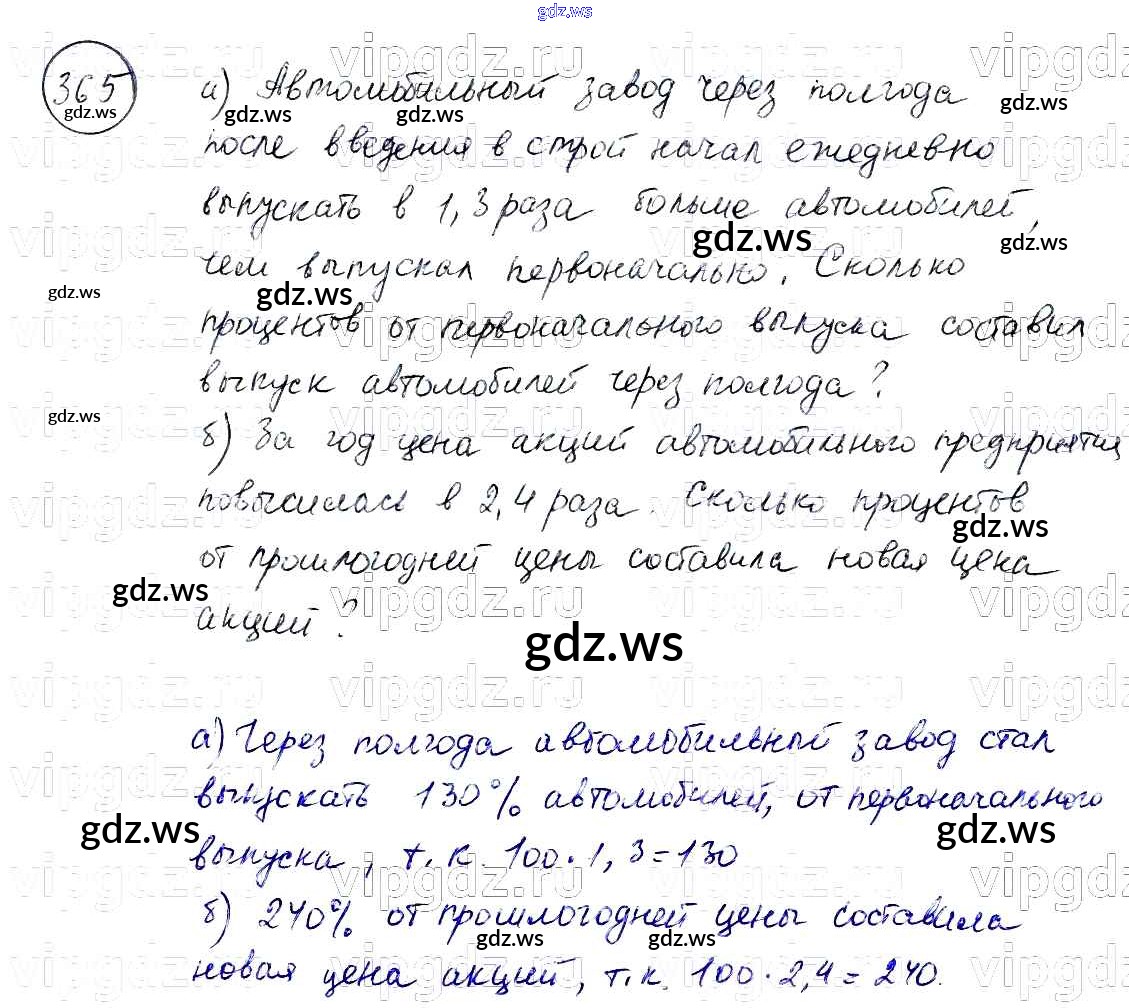 gdz.ws
365
а) Автомобильный завод через полгода
после введения в строй начал ежедневно
выпускать в 1,3 раза больше автомобилей,
чем выпускал первоначально. Сколько
процентов от первоначального выпуска составил
выпуск автомобилей через полгода?
б) За год цена акций автомобильного предприятия
повысилась в 2,4 раза. Сколько процентов
от прошлогодней цены составила новая цена
акций?
gdz.ws
а) Через полгода автомобильный завод стал
выпускать 130% автомобилей, от первоначального
выпуска, т.к. 100·1,3=130
б) 240% от прошлогодней цены составила
новая цена акций, т.к. 100·2,4=240.
vipgdz.ru